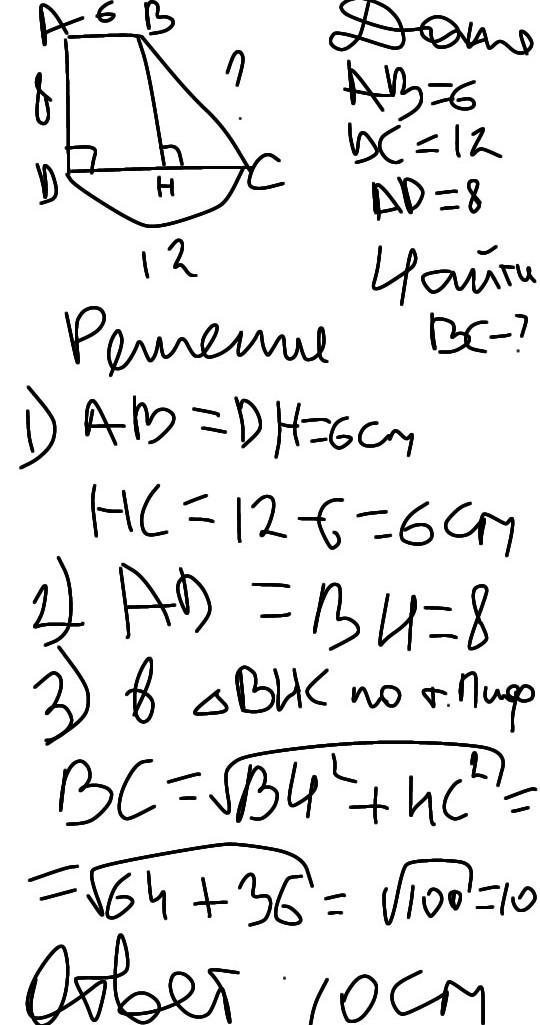 A 6 B
8
?
D H C
12
Дано
AB=6
DC=12
AD=8
Найти
BC-?
Решение
1) AB=DH=6см
HC=12-6=6см
2) AD=BH=8
3) в △BHC по т. Пифо
BC=√BH²+HC²=
=√64+36=√100=10
Ответ 10см